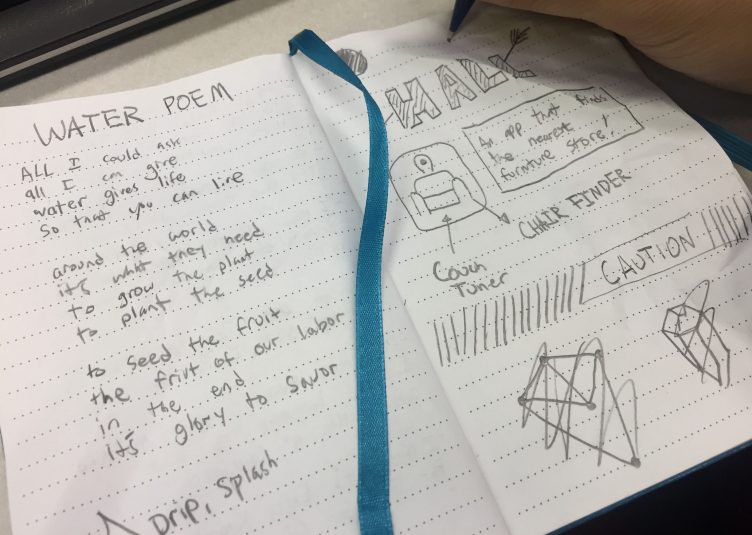 WATER POEM
ALL I could ask
all I can give
water gives life
so that you can live
around the world
it's what they need
to grow the plant
to plant the seed
to seed the fruit
the friut of our labor
in the end
it's glory to savor
Drip, Splash
An app that finds
the nearest
fornture store!
CHAIR FINDER
Couch
Tuner
CAUTION